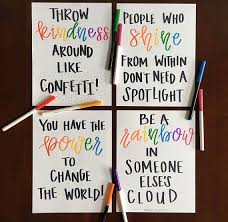 THROW
kindness
AROUND
LIKE
CONFETTI!
PEOPLE WHO
shine
FROM WITHIN
DON'T NEED A
SPOTLIGHT
YOU HAVE THE
power
TO CHANGE
THE WORLD!
BE A
rainbow
IN
SOMEONE
ELSE'S
CLOUD